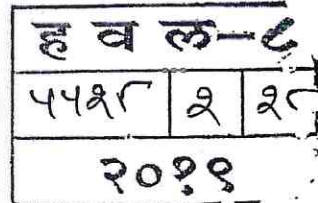 ह व ल-८
५५२८ २ २८
२०१९